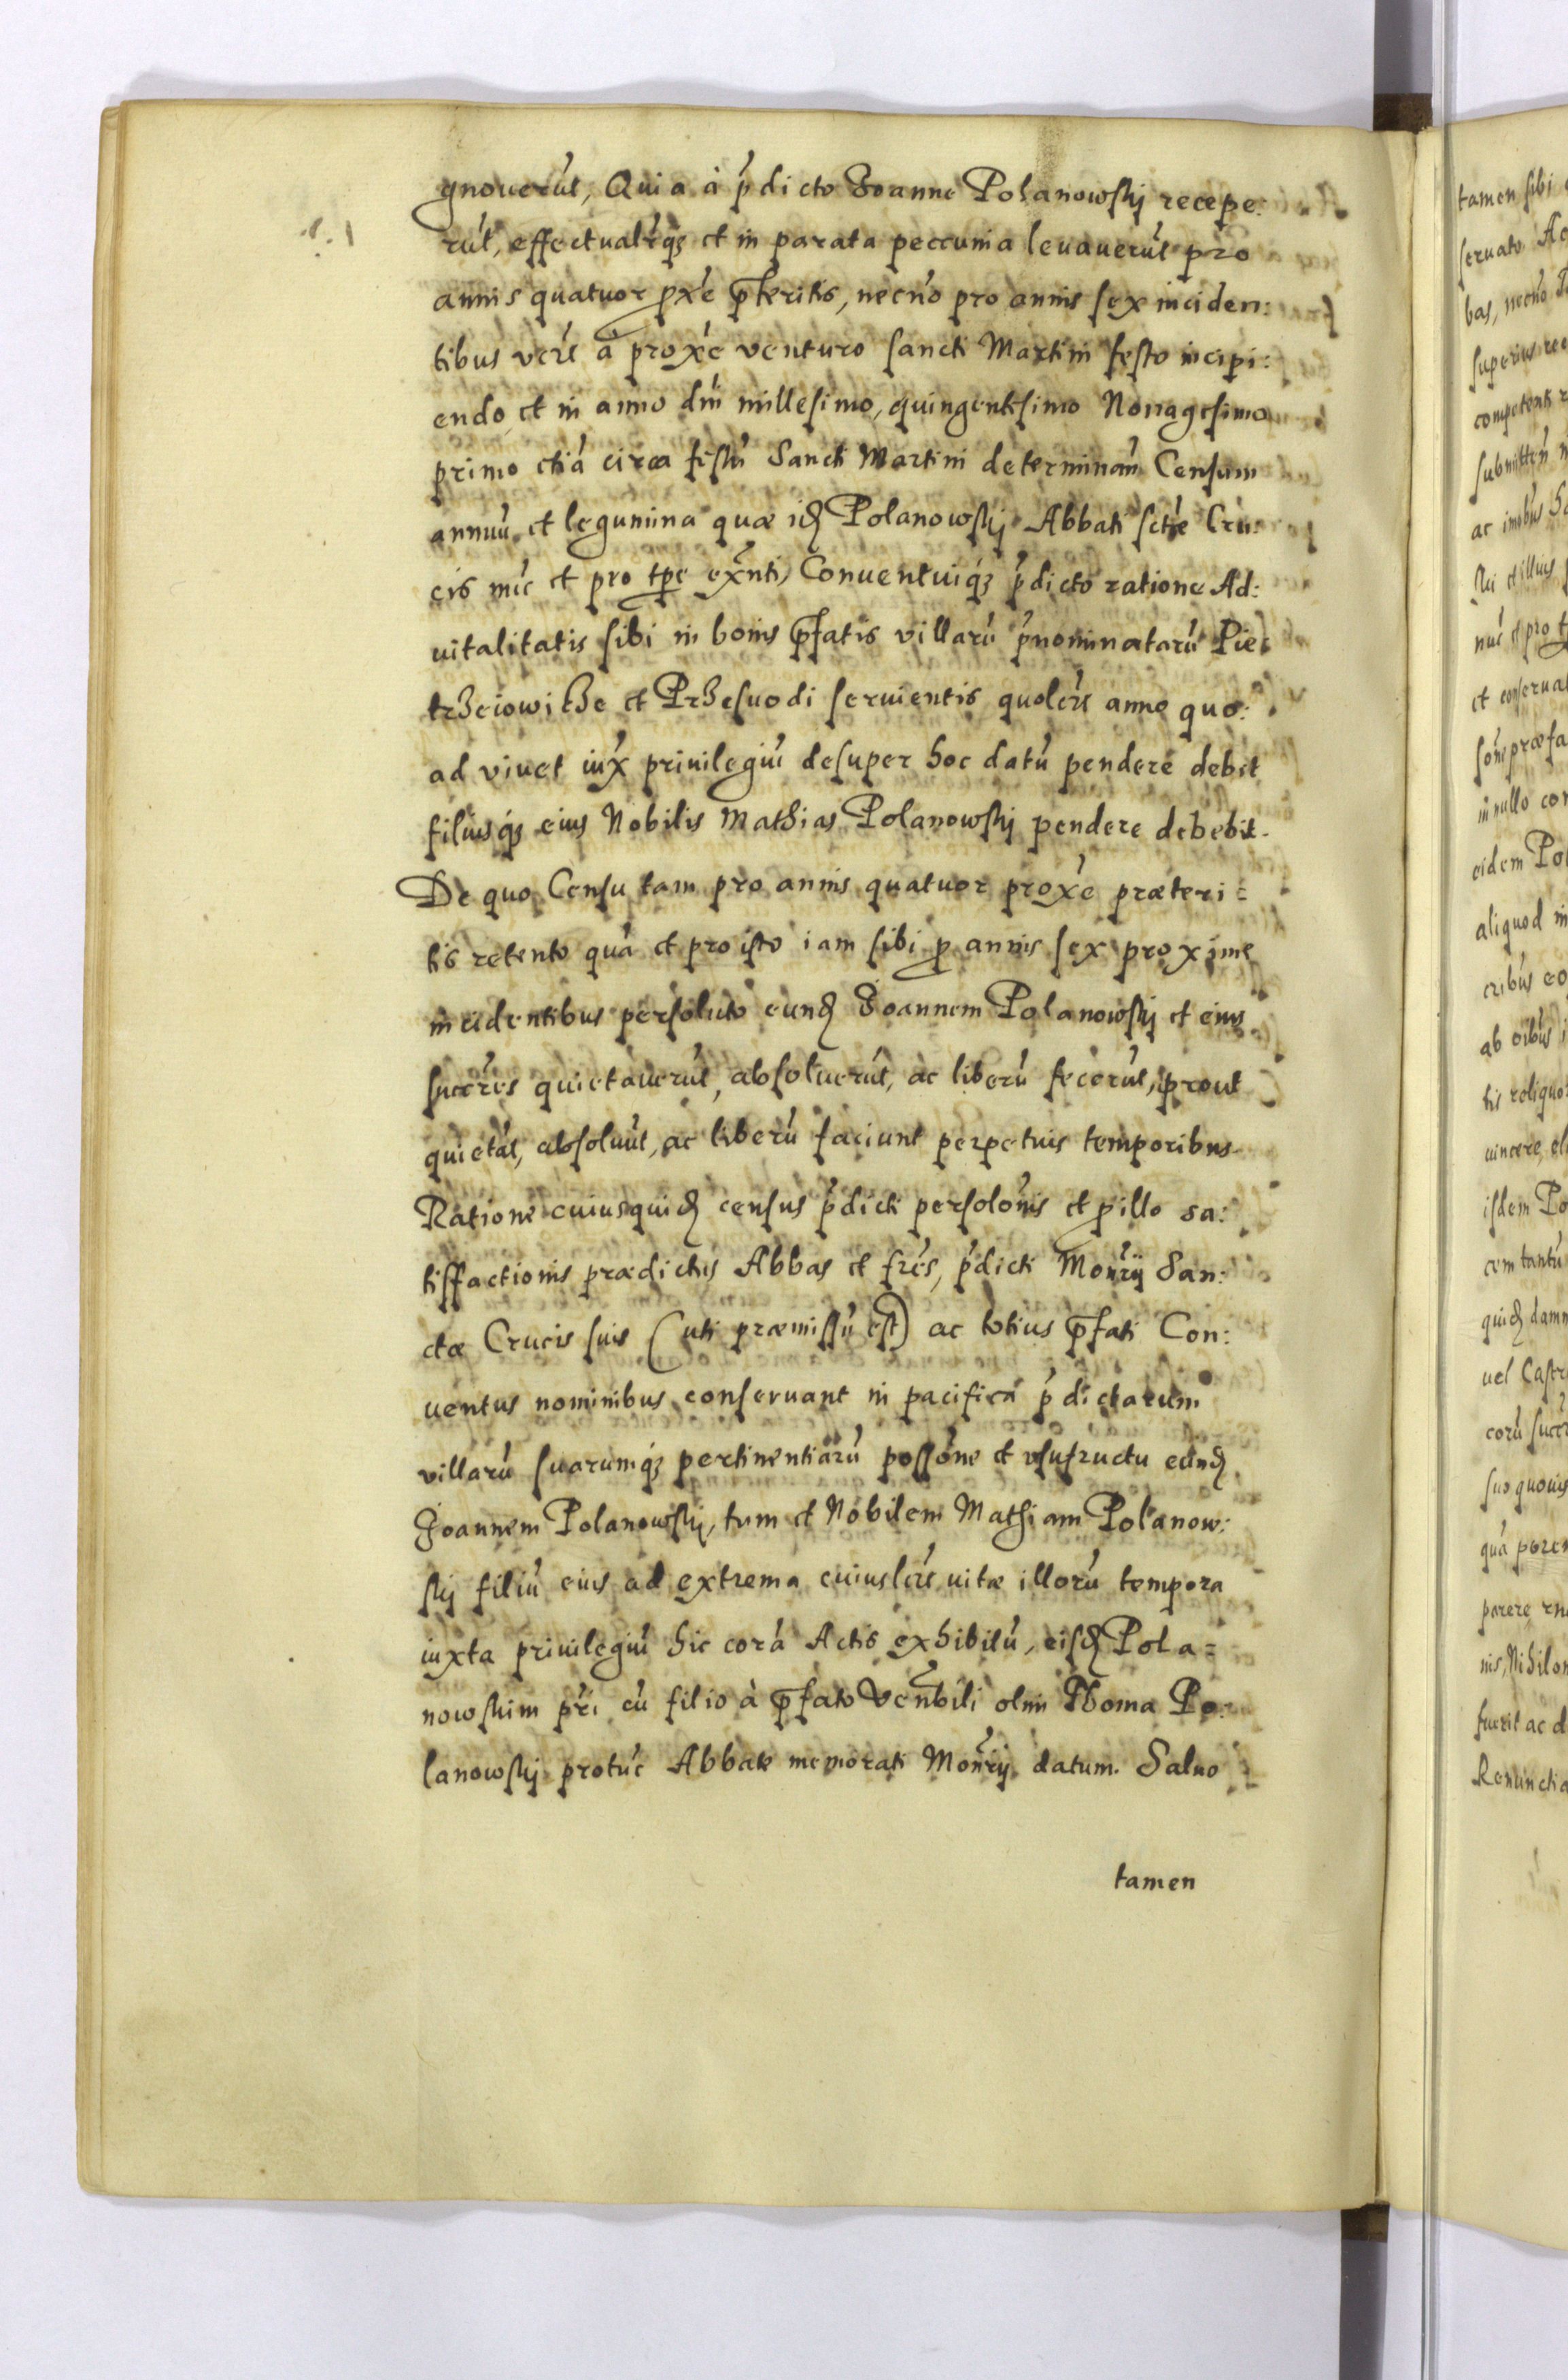 gnouerūt, Quia à p̄dicto Joanne Polanowskj recepe:
rūt, effectualr̄q3 et in parata peccunia leuauerūt pro
annis quatuor prox̄e p̄teritis, necn̄o pro annis sex inciden:
tibus ver̄s a prox̄e venturo sancti Martini festo incipi:
endo, et in anno dn̄i millesimo, quingentesimo Nonagesimo
primo etiā circa festū Sancti Martini determinan̄ Censum
annuū et legumina quæ id Polanowskj Abbati sctæ Cru:
cis nūc et pro tp̄e exn̄ti, Conuentuiq3 p̄dicto ratione Ad:
uitalitatis sibi in bonis p̄fatis villarū p̄nominatarū Pie
trzeiowicze et Przesuodi seruientis quolr̄s anno quo:
ad viuet iux̄ priuilegiū desuper hoc datū pendere debet
filiusq3 eius Nobilis Mathias Polanowskj pendere debebit.
De quo Censu tam pro annis quatuor prox̄e præteri=
tis retento quā et pro isto iam sibi p̄ annis sex proxime
incidentibus persoluto eund Joannem Polanowskj et eius
succr̄es quietauerūt, absoluerūt, ac liberū fecerūt, prout
quietāt, absoluūt, ac liberū faciunt perpetuis temporibus
Ratione cuiusquid census p̄dicti persolōnis et p̄ illo sa:
tisfactionis prædictus Abbas et fr̄es, p̄dicti Mon̄rij San:
ctæ Crucis suis (uti præmissū est) ac totius p̄fati Con:
uentus nominibus conseruant in pacificā p̄dictarum
villarū suarumq3 pertinentiarū possōne et vsufructu eund
Joannem Polanowskj, tum et Nobilem Mathiam Polanow:
skj filiū eius ad extrema cuiuslr̄s uitæ illorū tempora
iuxta priuilegiū hic corā Actis exhibitū, eisd Pola=
nowskim pr̄i cū filio à p̄fato Ven̄bili olim Thoma Po:
lanowskj protūc Abbate memorati Mon̄rij datum. Saluo
tamen